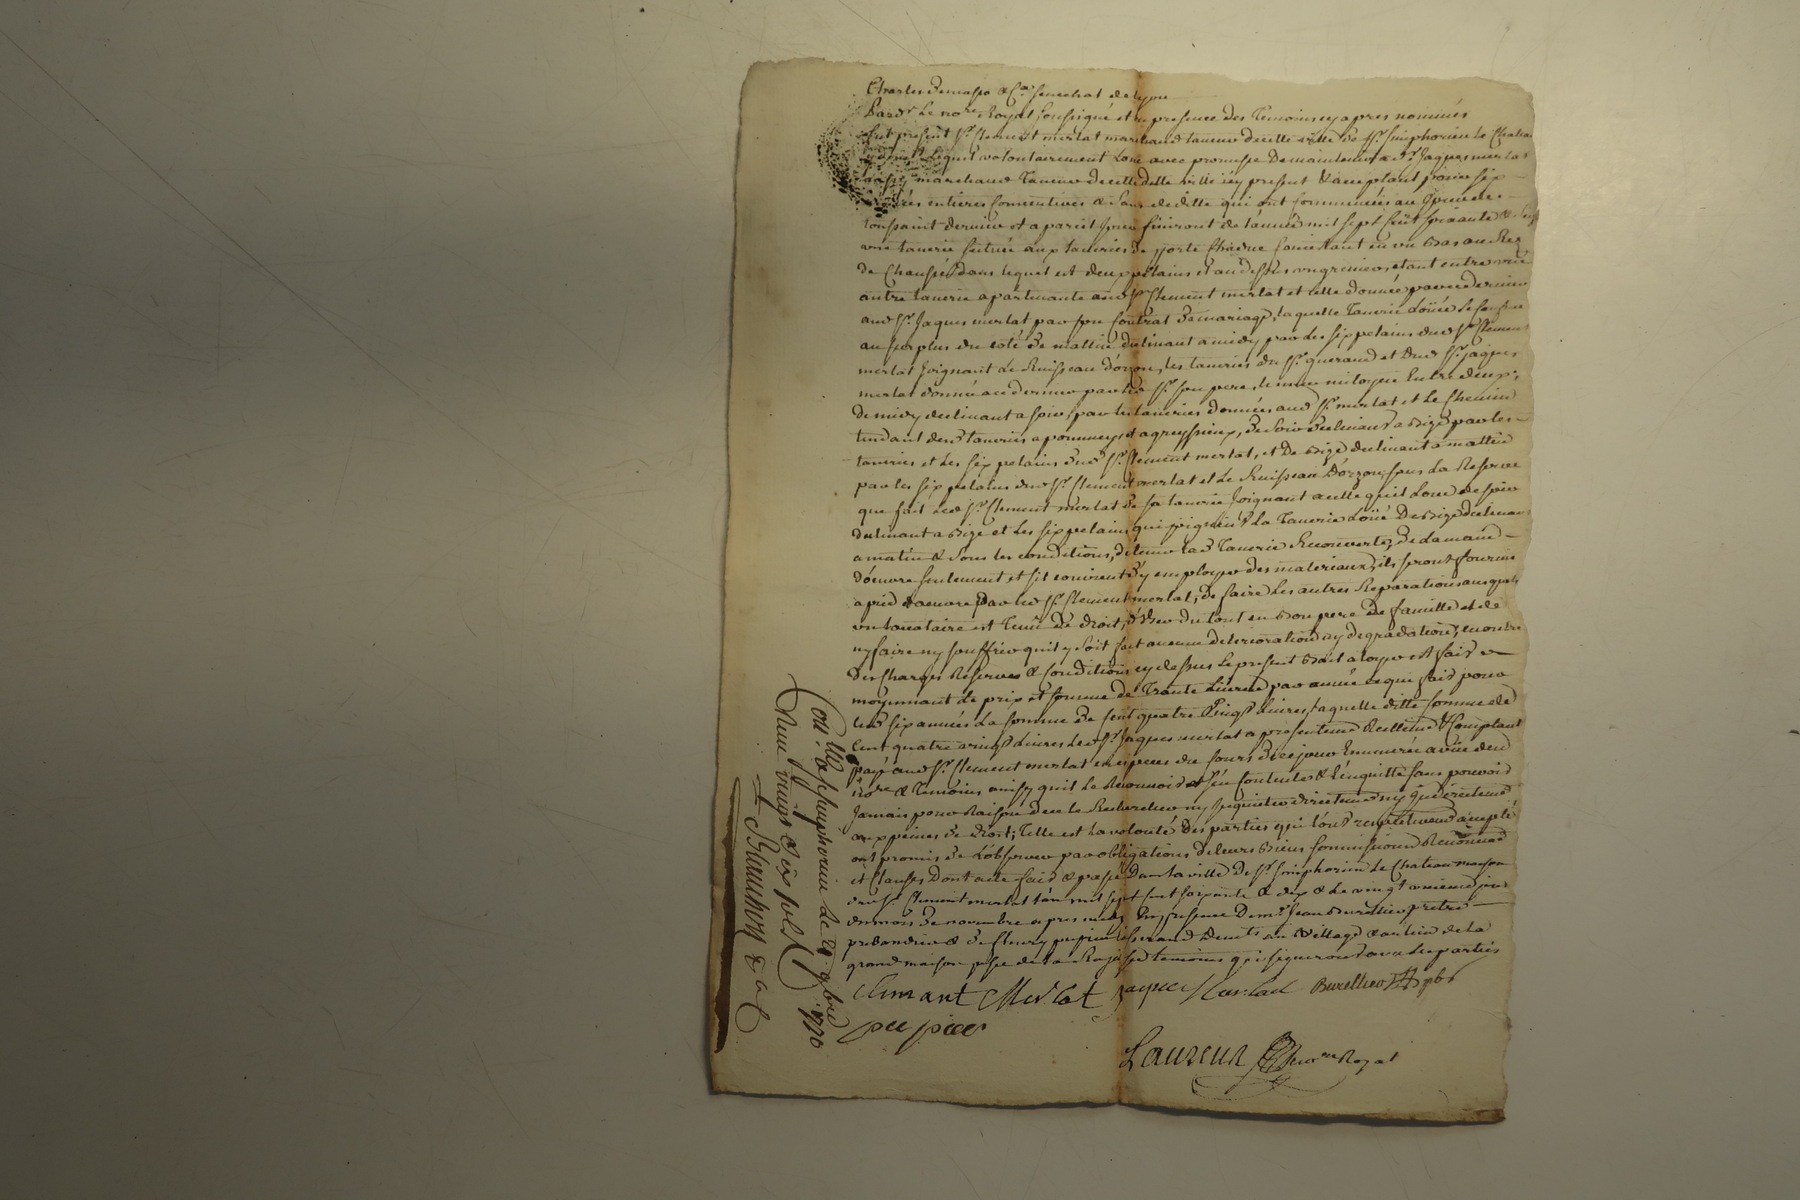 Charles Demasso & Ca. senechal de Lyon
Pardt. Le nore. Royal soussigné et en presence des Temoins cy apres nommés
fut present Sr. Clement merlat marchand taneur de cette ville de St. Simphorien le Chatau
lequel volontairement Loue avec promesse de maintenir a Sr. Jaques merlat
son fils marchand Taneur de cette ditte ville icy present & aceptant pour six
années entieres consecutives & sans deditte qui ont commencées au jour de
toussaint dernier et a pareil jour finiront de l'année mil sept cent soixante & seize
une tanerie scituée aux taneries de porte Chadue consistant en un bas au Rez
de Chaussé dans lequel est deux pelains et au dessus un grenier, etant entre une
autre tanerie apartenante audt Sr. Clement merlat et celle donnée par ce dernier
aud Sr. Jaques merlat par son Contrat de mariage, laquelle Tanerie Loüée se confine
au surplus du coté de matin declinant a midy par les six pelains dud Sr. Clement
merlat joignant Le Ruisseau d'orzon, les taneries du Sr. gueraud et dud Sr. jaques
merlat donné au dernier par led Sr. son pere, le mur mitoyen Entre deux;
de midy declinant a soir, par les taneries données aud Sr. merlat et Le Chemin
tendant desd. taneries a pommeys et a greyssieux, de soir declinant a bize par les
taneries et Les six pelains dud Sr. Clement merlat, et De bize declinant a matin
par les six pelains dud Sr. Clement merlat et Le Ruisseau d'orzon; sous La Reserve
que fait led Sr. Clement merlat de sa tanerie joignant a celle qu'il Loue de soir
declinant a bize et Les six pelains qui joignent La Tanerie Loüée De bize declinant
a matin & sous les conditions, de tenir lad Tanerie Recouverte, de la main
d'oeuvre seulement et s'il convient d'y employer des materiaux, ils seront fournis
a pied d'oeuvre par led Sr. Clement merlat; de faire Les autres Reparations auxquels
un Locataire est Tenu de droit, d'user du tout en bon pere de famille et de
ny faire ny souffrir qu'il y soit fait aucune deterioration ny degradation; en outre
des Charges Reserves & conditions cy dessus Le present bail a loyer est fait
moyennant Le prix et somme de Trante Livres par année ce que fait pour
lesd six années La somme de Cent quatre Vingt Livres, laquelle ditte somme de
Cent quatre vingt Livres led Sr. Jaques merlat a presentement Reellement & Comptant
payé aud Sr. Clement merlat en especes du cours de ce jour Enumerée a vüe dud
nore & temoins ainsy qu'il Le Reconnoit s'en contente & L'enquitte sans pouvoir
Jamais pour Raison d'ice le Rechercher ny inquieter directement ny indirectement
aux peines de droit; Telle est La volonté Des parties qui l'ont respectivement accepté
ont promis de L'observer par obligations de leurs biens soumissions Renonciaons
et Clauses Dont acte fait & passé dans la ville De St. Simphorien Le Chatau maison
dud Sr. Clement merlat L'an mil sept cent soixante & dix & Le vingt unieme jour
du mois de novembre apres midy En presence De mre. Jean Burellier pretre
prebandier & de fleury pupier au village & au lieu de la
grand maison psse de La Rajasse temoins qui signeront avec les parties
Climant Merlat jaques Merlat Burellier pbr
pupier
Laureur nore Royal
Con.lle a St. simphorien le 21 9bre 1770
Reçu vingt six sols